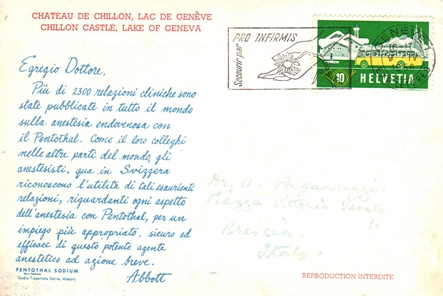 CHATEAU DE CHILLON, LAC DE GENÈVE
CHILLON CASTLE, LAKE OF GENEVA
Egregio Dottore,
Più di 2300 relazioni cliniche sono
state pubblicate in tutto il mondo
sulla anestesia endovenosa con
il Pentothal. Come i loro colleghi
nelle altre parti del mondo, gli
anestesisti, qua in Svizzera
riconoscono l'utilità di tali esaurienti
relazioni, riguardanti ogni aspetto
dell'anestesia con Pentothal, per un
impiego più appropriato, sicuro ed
efficace di questo potente agente
anestetico ad azione breve.
Abbott
PENTOTHAL SODIUM
Abbott
PRO INFIRMIS
Secourir par
10
HELVETIA
Dr. A.
Piazza Vittorio Veneto
Brescia
Italy
REPRODUCTION INTERDITE